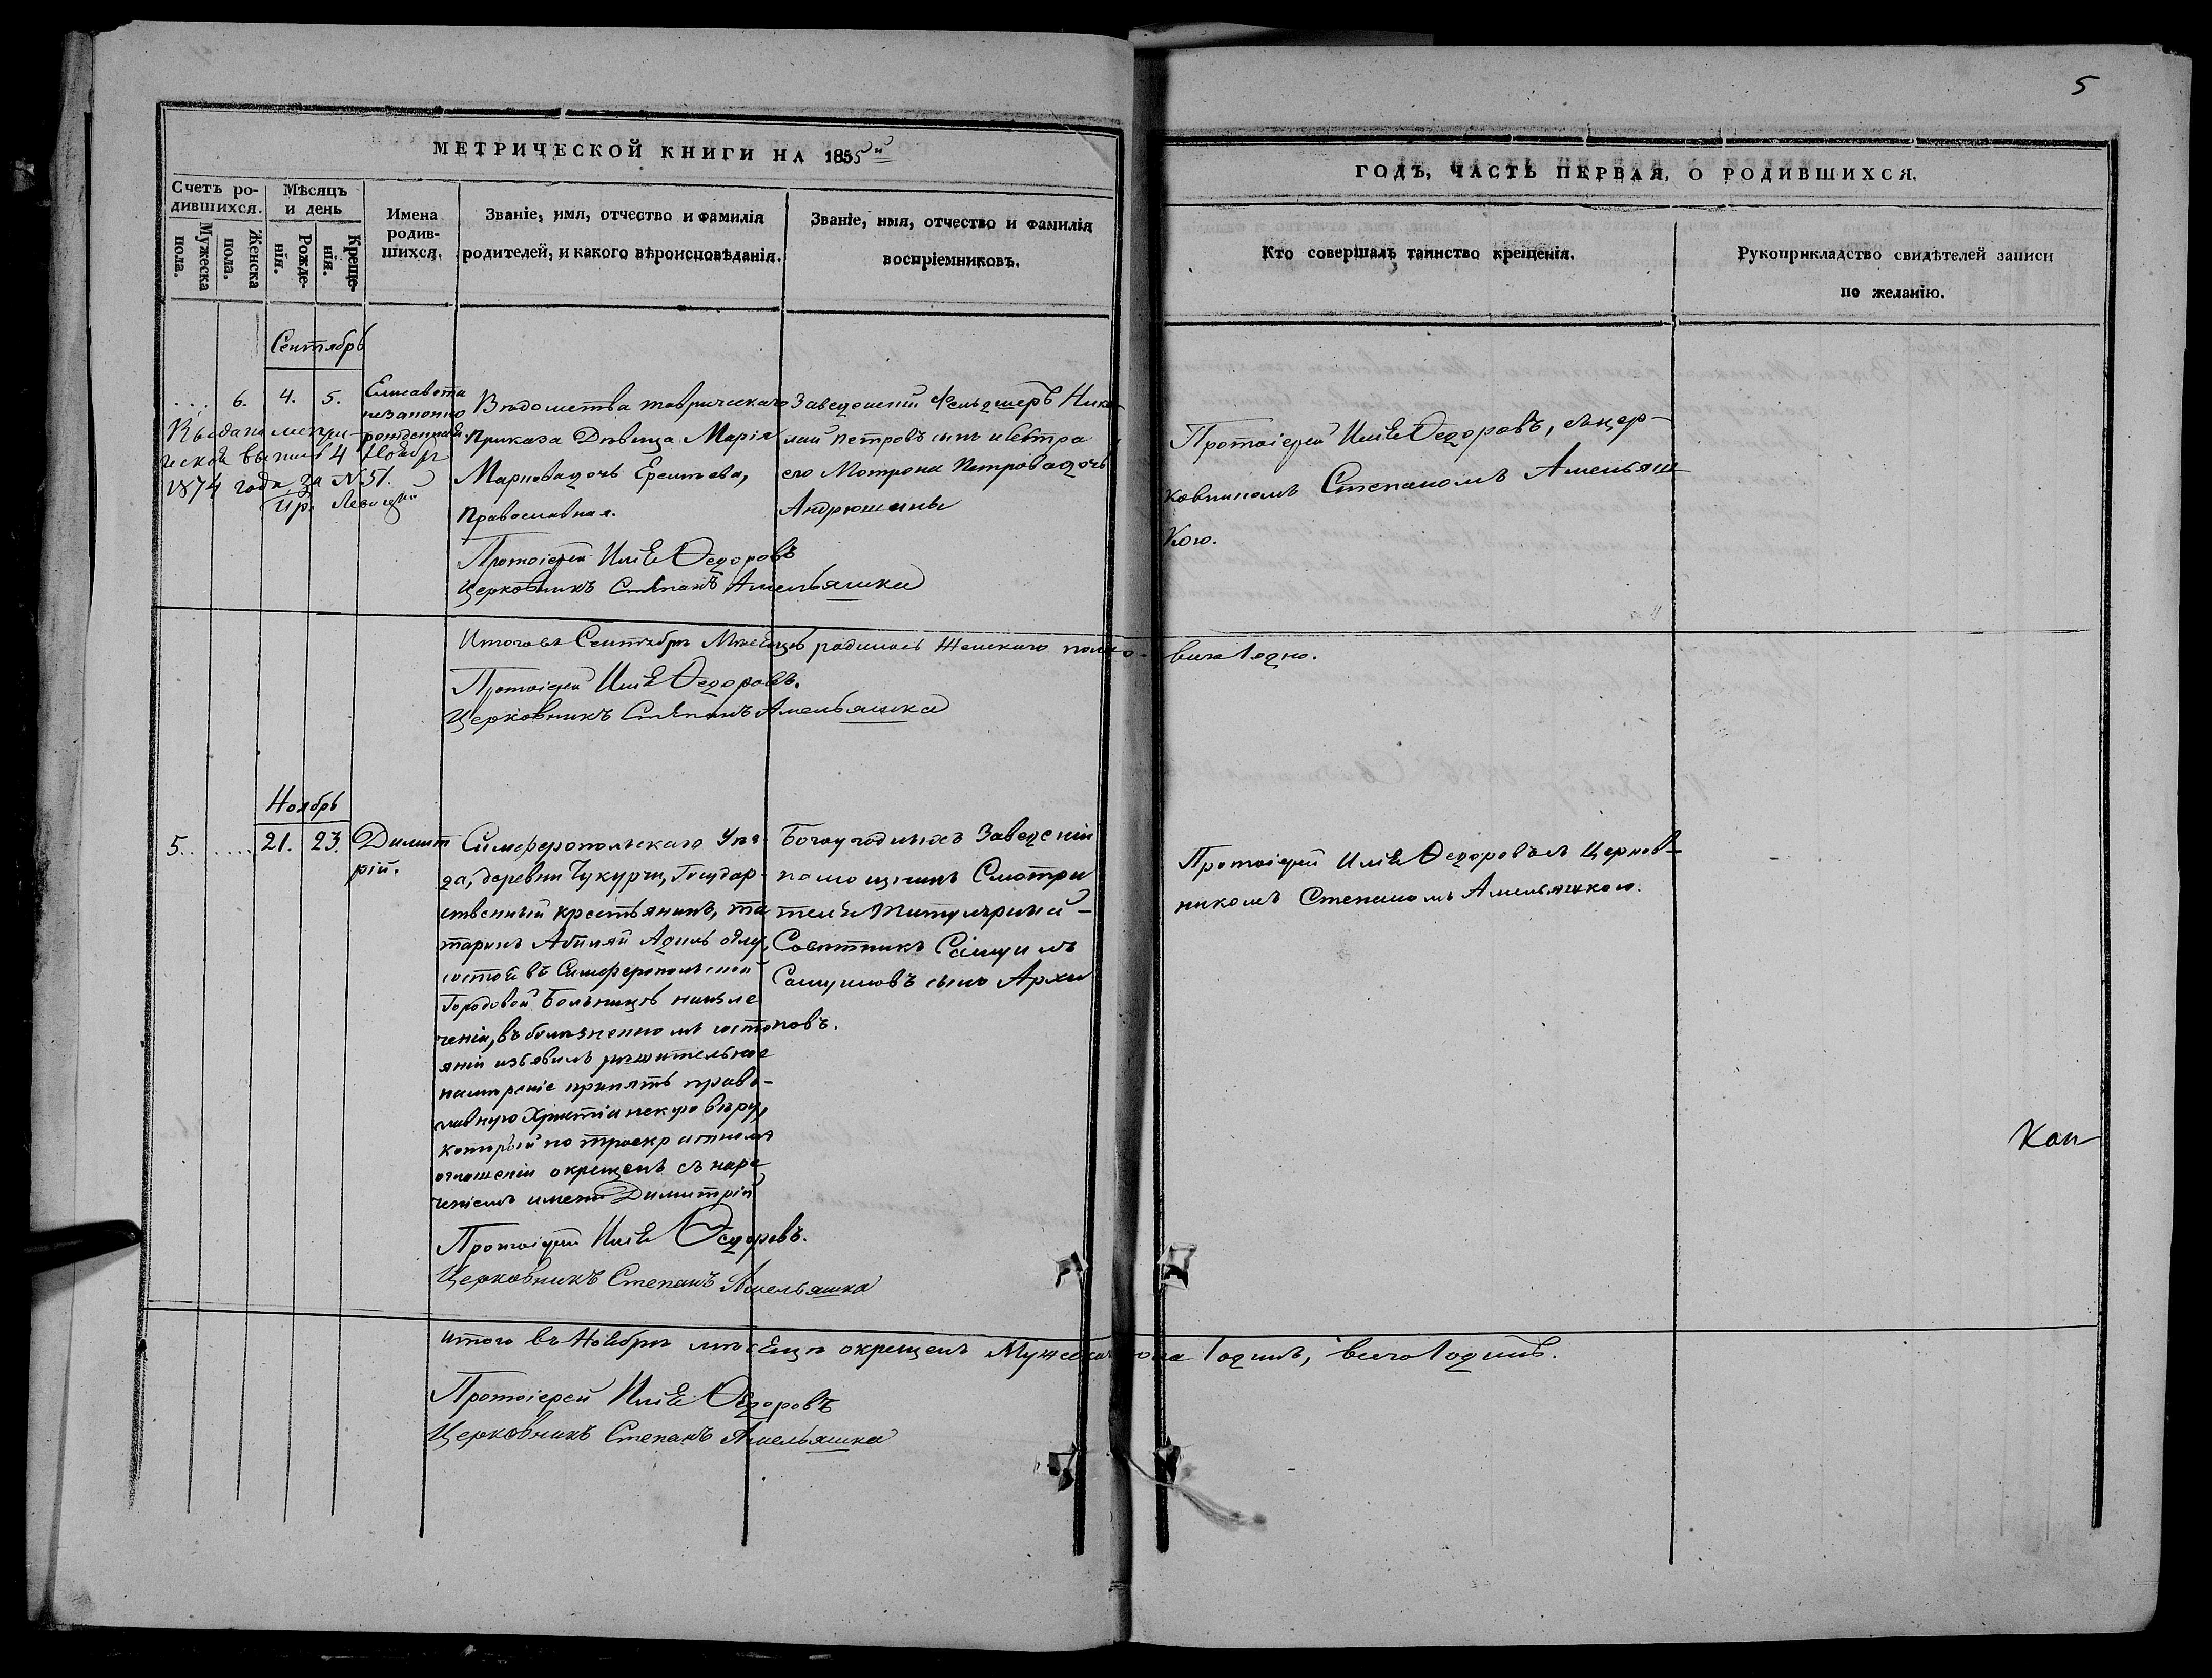 5
МЕТРИЧЕСКОЙ КНИГИ НА 1855й
ГОДЪ, ЧАСТЬ ПЕРВАЯ, О РОДИВШИХСЯ.
Счетъ ро-
дившихся.
Мужеска
пола.
Женска
пола.
Мѣсяцъ
и день
Рожде-
нія.
Креще-
нія.
Имена
родив-
шихся.
Званіе, имя, отчество и фамилія
родителей, и какого вѣроисповѣданія.
Званіе, имя, отчество и фамилія
воспріемниковъ.
Кто совершалъ таинство крещенія.
Рукоприкладство свидѣтелей записи
по желанію.
Сентябрь
... 6. 4. 5.
Елисавета
незаконно
рожденная
Выдана метри-
ческая выпись 4 Ноябр
1874 года за N 51.
Вѣдомства таврическаго
Приказа Дѣвица Марія
Маркова дочь
Православная.
Протоіерей Илія Ѳедоровъ
Церковникъ Стѣпанъ Амельяшка
Заведеній Фельдшеръ Нико-
лай Петровъ сынъ и сестра
его Мотрона Петрова дочь
Андрюшины
Протоіерей Илія Ѳедоровъ, съ цер-
ковникомъ Степаномъ Амельяш-
кою.
Итого въ Сентябрѣ Мѣсяцѣ родилось Женскаго пола 1 одно.
всего 1 одно.
Протоіерей Илія Ѳедоровъ.
Церковникъ Стѣпанъ Амельяшка
Ноябрь
5. .... 21. 23.
Димит
рій.
Симферопольскаго Уѣз-
да, деревни Чукурчи, Государ-
ственный крестьянинъ, та
таринъ
состоя въ Симферопольской
Городовой Больницѣ на излѣ
ченіи, въ болѣзненномъ состо
яніи изъявилъ рѣшительное
намѣреніе принять право-
славную Христіанскую вѣру,
который по троекратномъ
оглашеніи окрещенъ съ наре
ченіемъ имени Димитрій
Протоіерей Илія Ѳедоровъ.
Церковникъ Степанъ Амельяшка
Богоугодныхъ Заведеній
помощникъ Смотри
теля Титулярный
Совѣтникъ Самуилъ
Самуиловъ сынъ Архи
повъ.
Протоіерей Илія Ѳедоровъ съ Церков-
никомъ Степаномъ Амельяшкою.
Кол-
итого въ Ноябрѣ мѣсяцѣ окрещенъ Мужескаго пола 1 одинъ, всего 1 одинъ.
Протоіерей Илія Ѳедоровъ
Церковникъ Степанъ Амельяшка